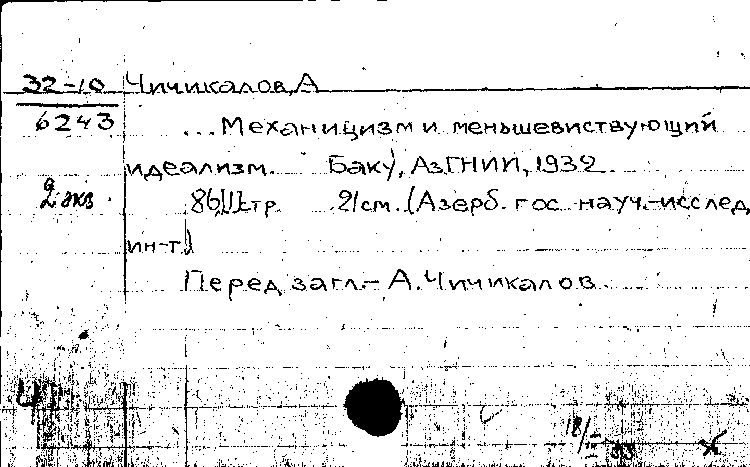 32-10 Чичикалов, А
6243 ...Механицизм и меньшевиствующий
идеализм. Баку, АзГНИИ, 1932
2 экз 86, II стр 21см. (Азерб. гос науч.-исслед,
ин-т)
Перед загл.- А. Чичикалов
Ч
18/III 33 х